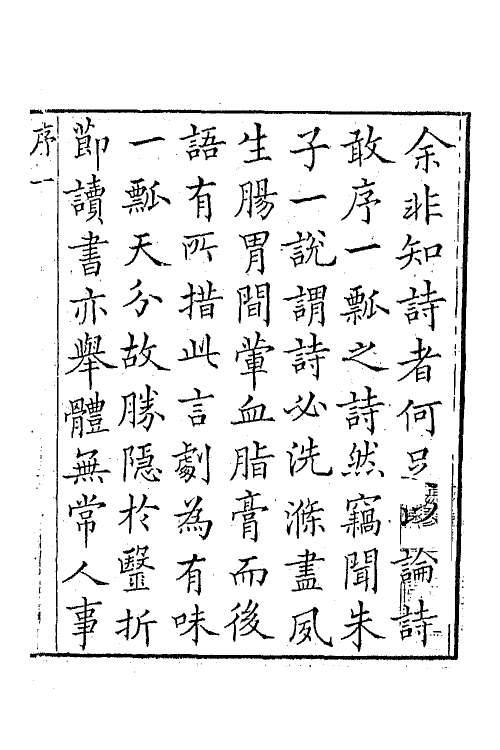 余非知詩者何足論詩
敢序一瓢之詩然竊聞朱
子一説謂詩必洗滌盡夙
生腸胃間葷血脂膏而後
語有所措此言劇為有味
一瓢天分故勝隱於毉折
節讀書亦舉體無常人事
序一